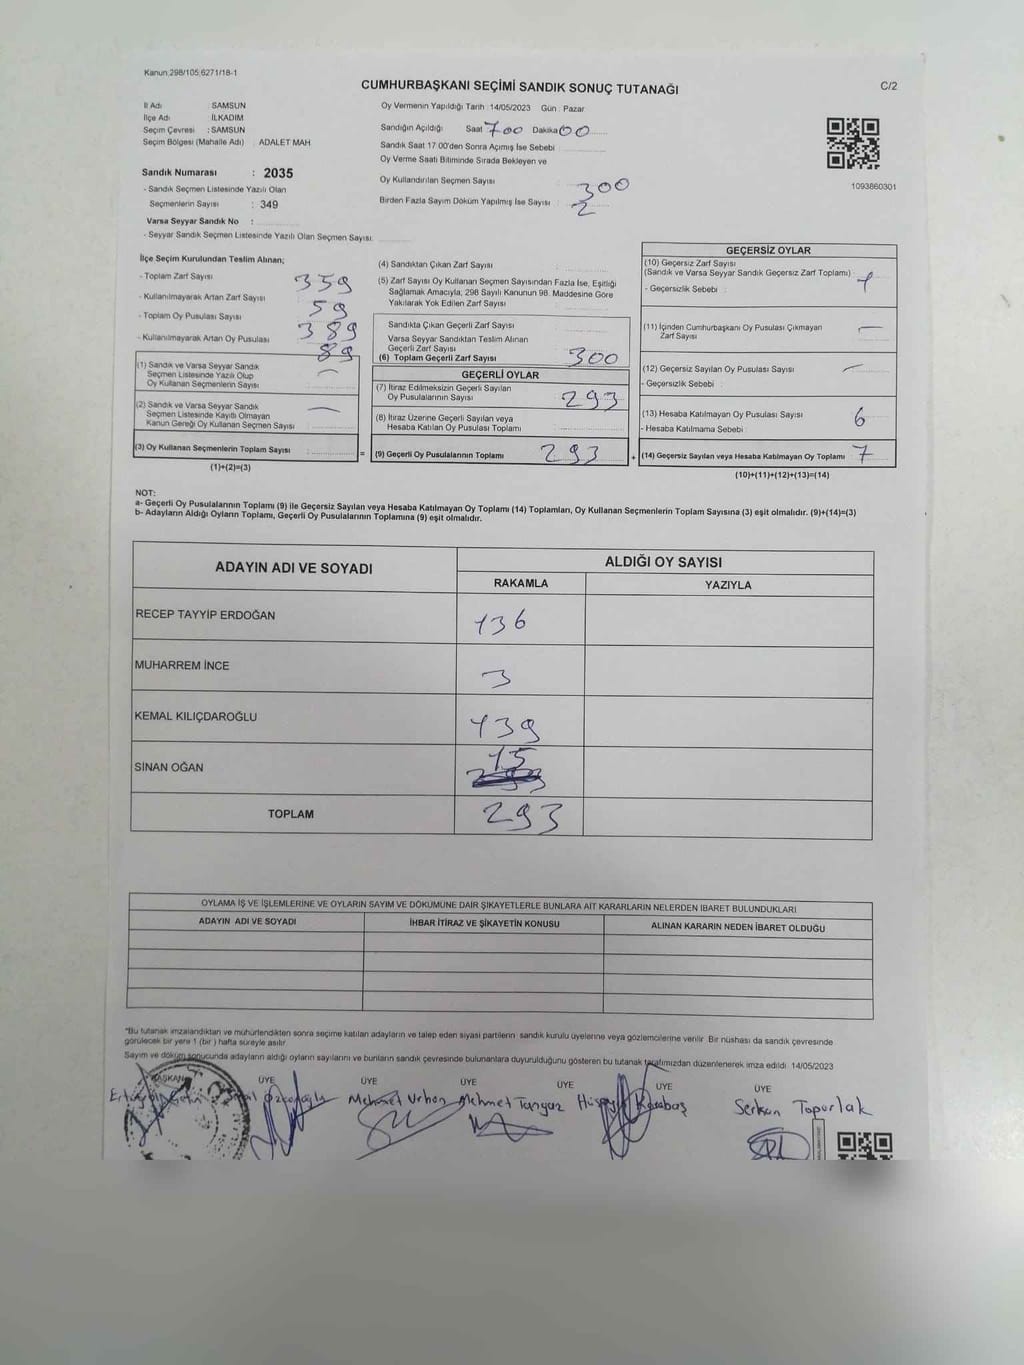 Kanun:298/105;6271/18-1
CUMHURBAŞKANI SEÇİMİ SANDIK SONUÇ TUTANAĞI
C/2
İl Adı : SAMSUN
İlçe Adı : İLKADIM
Seçim Çevresi : SAMSUN
Seçim Bölgesi (Mahalle Adı) : ADALET MAH
Sandık Numarası : 2035
- Sandık Seçmen Listesinde Yazılı Olan
Seçmenlerin Sayısı : 349
Varsa Seyyar Sandık No :
- Seyyar Sandık Seçmen Listesinde Yazılı Olan Seçmen Sayısı:
Oy Vermenin Yapıldığı Tarih : 14/05/2023 Gün : Pazar
Sandığın Açıldığı Saat 700 Dakika 00
Sandık Saat 17.00'den Sonra Açımış İse Sebebi :
Oy Verme Saati Bitiminde Sırada Bekleyen ve
Oy Kullandırılan Seçmen Sayısı : 300
Birden Fazla Sayım Döküm Yapılmış İse Sayısı : 2
1093860301
İlçe Seçim Kurulundan Teslim Alınan;
- Toplam Zarf Sayısı : 359
- Kullanılmayarak Artan Zarf Sayısı : 59
- Toplam Oy Pusulası Sayısı : 389
- Kullanılmayarak Artan Oy Pusulası : 89
(1) Sandık ve Varsa Seyyar Sandık
Seçmen Listesinde Yazılı Olup
Oy Kullanan Seçmenlerin Sayısı : —
(2) Sandık ve Varsa Seyyar Sandık
Seçmen Listesinde Kayıtlı Olmayan
Kanun Gereği Oy Kullanan Seçmen Sayısı : —
(3) Oy Kullanan Seçmenlerin Toplam Sayısı :
(1)+(2)=(3)
=
(4) Sandıktan Çıkan Zarf Sayısı :
(5) Zarf Sayısı Oy Kullanan Seçmen Sayısından Fazla İse, Eşitliği
Sağlamak Amacıyla, 298 Sayılı Kanunun 98. Maddesine Göre
Yakılarak Yok Edilen Zarf Sayısı :
Sandıkta Çıkan Geçerli Zarf Sayısı :
Varsa Seyyar Sandıktan Teslim Alınan
Geçerli Zarf Sayısı :
(6) Toplam Geçerli Zarf Sayısı : 300
GEÇERLİ OYLAR
(7) İtiraz Edilmeksizin Geçerli Sayılan
Oy Pusulalarının Sayısı : 293
(8) İtiraz Üzerine Geçerli Sayılan veya
Hesaba Katılan Oy Pusulası Toplamı :
(9) Geçerli Oy Pusulalarının Toplamı : 293
+
GEÇERSİZ OYLAR
(10) Geçersiz Zarf Sayısı
(Sandık ve Varsa Seyyar Sandık Geçersiz Zarf Toplamı) : 1
- Geçersizlik Sebebi :
(11) İçinden Cumhurbaşkanı Oy Pusulası Çıkmayan
Zarf Sayısı : —
(12) Geçersiz Sayılan Oy Pusulası Sayısı : —
- Geçersizlik Sebebi :
(13) Hesaba Katılmayan Oy Pusulası Sayısı : 6
- Hesaba Katılmama Sebebi :
(14) Geçersiz Sayılan veya Hesaba Katılmayan Oy Toplamı : 7
(10)+(11)+(12)+(13)=(14)
NOT:
a- Geçerli Oy Pusulalarının Toplamı (9) ile Geçersiz Sayılan veya Hesaba Katılmayan Oy Toplamı (14) Toplamları, Oy Kullanan Seçmenlerin Toplam Sayısına (3) eşit olmalıdır. (9)+(14)=(3)
b- Adayların Aldığı Oyların Toplamı, Geçerli Oy Pusulalarının Toplamına (9) eşit olmalıdır.
ADAYIN ADI VE SOYADI
ALDIĞI OY SAYISI
RAKAMLA YAZIYLA
RECEP TAYYİP ERDOĞAN 136
MUHARREM İNCE 3
KEMAL KILIÇDAROĞLU 139
SİNAN OĞAN 15
TOPLAM 293
OYLAMA İŞ VE İŞLEMLERİNE VE OYLARIN SAYIM VE DÖKÜMÜNE DAİR ŞİKAYETLERLE BUNLARA AİT KARARLARIN NELERDEN İBARET BULUNDUKLARI
ADAYIN ADI VE SOYADI İHBAR İTİRAZ VE ŞİKAYETİN KONUSU ALINAN KARARIN NEDEN İBARET OLDUĞU
*Bu tutanak imzalandıktan ve mühürlendikten sonra seçime katılan adayların ve talep eden siyasi partilerin sandık kurulu üyelerine veya gözlemcilerine verilir. Bir nüshası da sandık çevresinde
görülecek bir yere 1 (bir) hafta süreyle asılır.
Sayım ve döküm sonucunda adayların aldığı oyların sayılarını ve bunların sandık çevresinde bulunanlara duyurulduğunu gösteren bu tutanak tarafımızdan düzenlenerek imza edildi. 14/05/2023
BAŞKAN ÜYE ÜYE ÜYE ÜYE ÜYE ÜYE
Mehmet Urhan Mehmet Tangaz Karabaş Serkan Toparlak